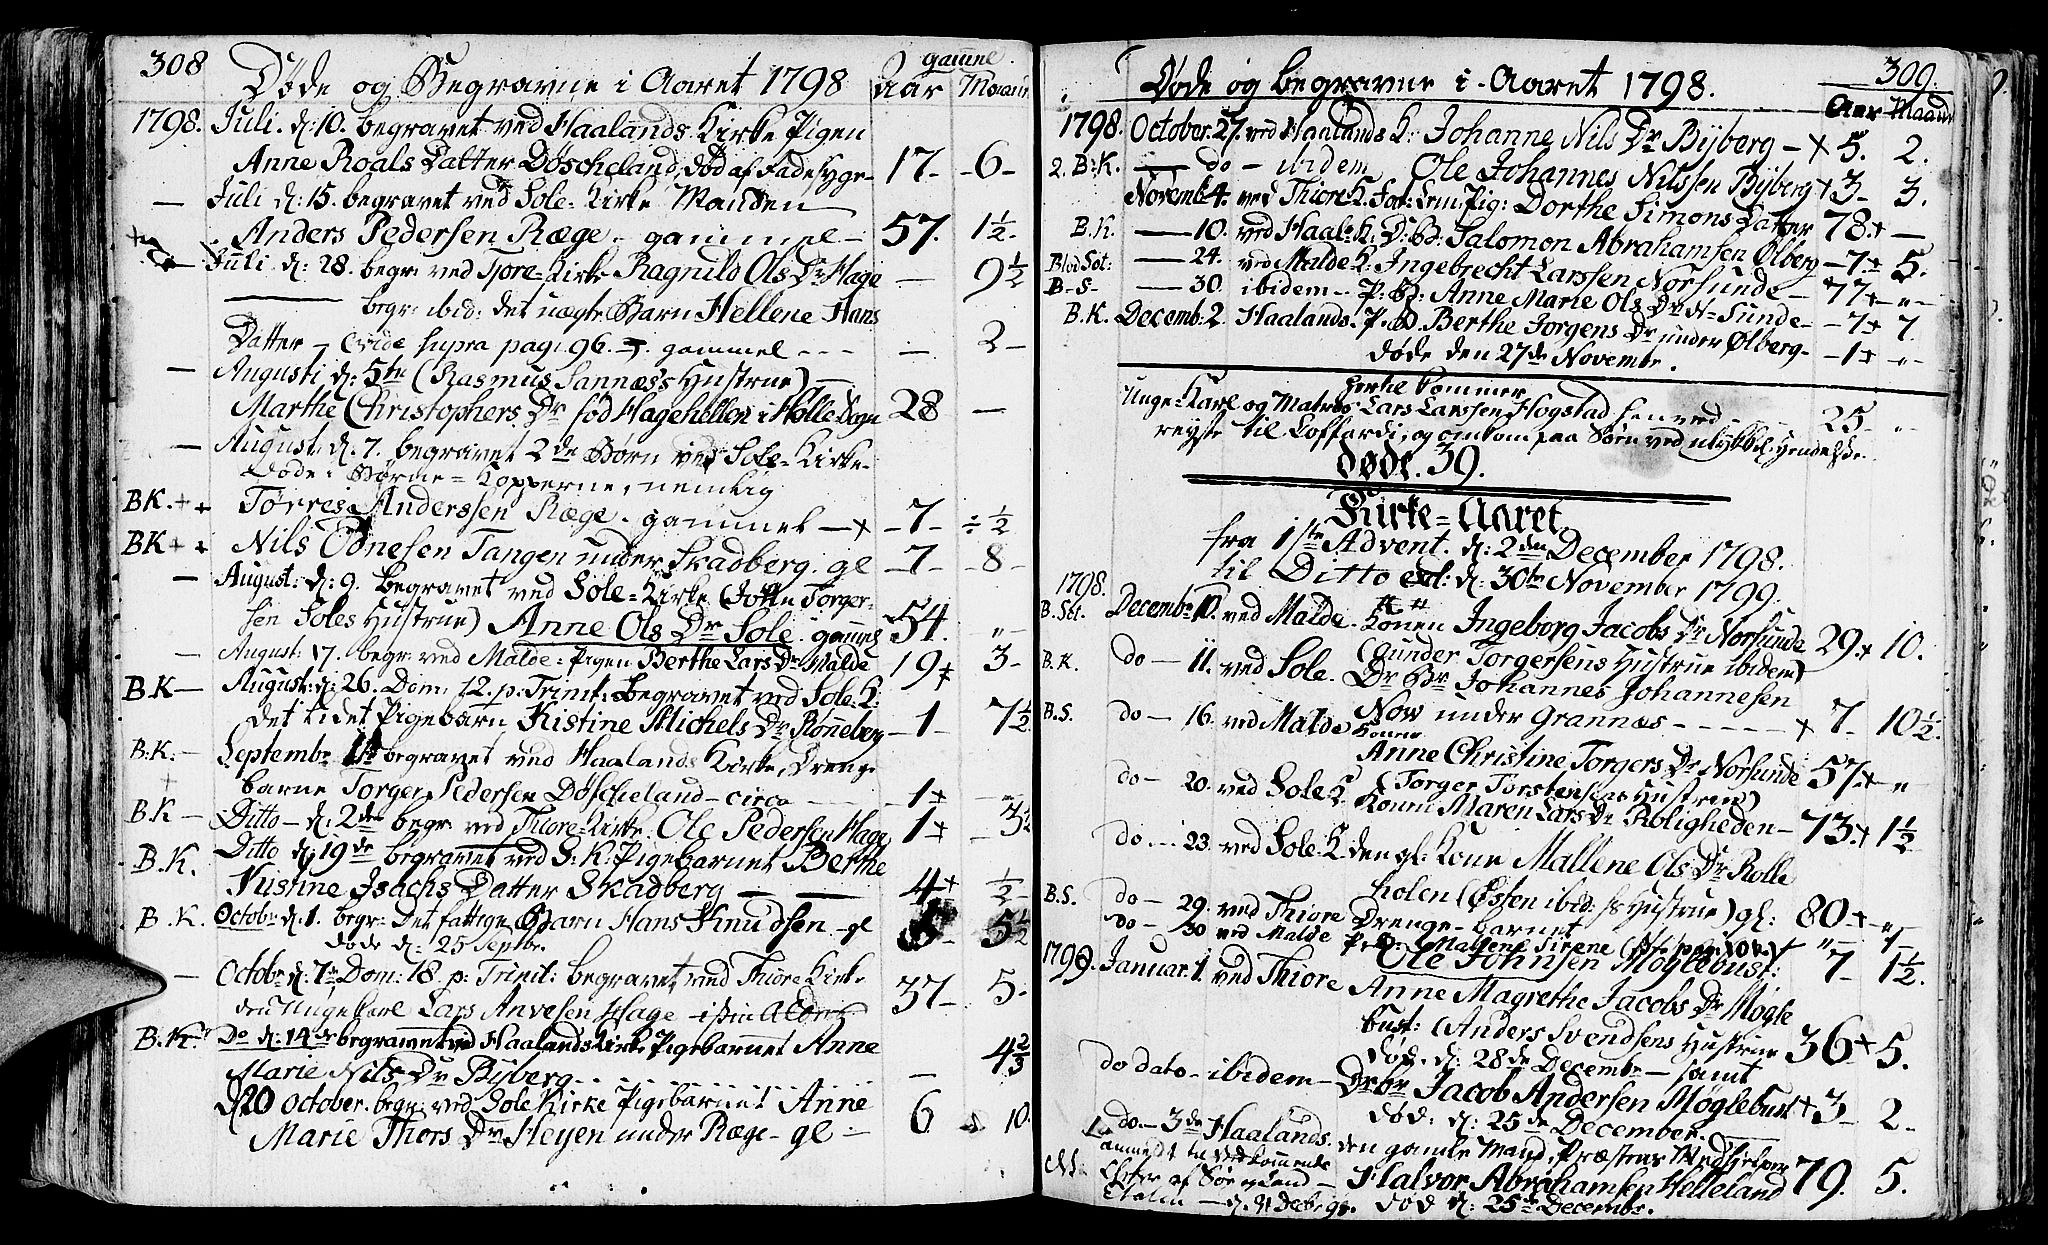 308
Døde og Begravne i Aaret 1798 Aar gamle Maan
1798. Juli. d: 10. begravet ved Haalands Kirke Pigen
Anne Roals Datter Døscheland, død af 17- -6-
Juli d: 15. begravet ved Sole-Kirke Manden
Anders Pedersen Ræge. gammel- 57. 1½-
Juli d: 28. begr: ved Tjore-Kirke Ragnild Ols Dr Hage - 9½
begr: ibid: det uægte Barn Hellene Hans
Datter (vide supra pag: 96. gammel --- - 2-
- Augusti d: 5te (Rasmus Sannæs's Hustrue)
Marthe Christophers Dr fød Hagehellen i Holle Sogn 28 -
- August: d: 7. begravet 2de Børn ved Sole-Kirke-
Døde: Børne-Kopperne, nemlig
BK. ++ Torres Anderssen Ræge. gammel -x -7- ÷½
BK ++ Nils Odnesen Tangen under Skadberg. gl -7- -8-
- August: d: 9. begravet ved Sole-Kirke (Torger-
sen Soles Hustrue) Anne Ols Dr Sole. gammel 54. "-
- August: 17. begr: ved Malde-Pigen Berthe Lars Dr Malde 19+ 3-
BK- August: d: 26. Dom: 12. p: Trinit: begravet ved Sole K:
det lidet Pigebarn Kistine Michels Dr Rønneberg -1- 7½
B.K:- Septembr begravet ved Haalands Kirke, Drenge
barne Torger Pedersen Døscheland - circa -1+ "
B K - Ditto - d: 2den begr ved Thiore-Kirke. Ole Pedersen Hage 1+ 3½
B.K. Ditto d: 19de begravet ved S: K: Pigebarnet Berthe
Kistine Isachs Datter Skadberg - - 4+ ½-
B.K. Octobr d. 1. begr: det fattige Barn Hans Knudsen - gl - 5½
døde d: 25 Septbr.
- Octobr d: 7de Dom: 18. p: Trinit: begravet ved Thiore Kirke
den Ungekarl Lars Anvesen Hage i sin Alder 37- 5-
B.K. Do d: 14de begravet ved Haalands Kirke Pigebarnet Anne
Marie Nils Dr Bÿberg - 4⅔
d 20 October. begr: ved Sole Kirke Pigebarnet Anne
Marie Thors Dr Heyen under Ræge - gl - 6 10.
309.
Døde og begravne i Aaret 1798. Aar Maan
1798. October. 27. ved Haalands K: Johanne Nils Dr Bÿberg -+ 5. 2.
2. B:K. - do - ibidem Ole Johannes Nilssen Bÿberg + 3- 3.
Novemb: 4. ved Thiore K. Fat: Lem Pig: Dorthe Simons Datter 78.+ -
B.K. - 10. ved Haal: K: D: B: Salomon Abrahamsen Ølberg -7+ 5.
Blod Sot: - 24. ved Malde K: Ingebrecht Larssen Norsunde - 77+ "-
B-S- - 30. ibidem - P: B: Anne Marie Ols Dr N-Sunde- -7+ 7.
B.K. Decemb: 2. Haalands. P. B. Berthe Jorgens Dr under Ølberg- -1+ "-
døde den 27de Novembr.
Unge-Karl og Matros Lars Larssen Hogstad 25- "
reyste til Koffardi, og omkom paa Søen ved ulykkel: Hendelse
døde. 39.
Kirke-Aaret
fra 1ste Advent. d: 2den December 1798.
til Ditto d: 30te November 1799.
1798.
B. Sot. Decembr 10. ved Malde. Konen Ingeborg Jacobs Dr Norsunde 29+ 10.
(Gunder Torgersens Hustrue ibidem)
B.K. do - 11. ved Sole. Dr Br Johannes Johannesen
Now under Grannæs - - - + 7- 10½.
B.S. do - 16. ved Malde Konen
Anne Christine Torgers Dr Norsunde 57+ "
(Torger Torstensens Hustrue)
do - 20. ved Sole K Konen Maren Lars Dr Roligheden- 73+ 1½
do - 23. ved Sole K. den gl: Kone Mallene Ols Dr Rolle
holen (Østen ibid: s Hustrue) gl: 80+ "
B.S. do - 29. ved Thiore Drenge-barnet
do - 30 ved Malde Mallene Sirene "- 1-
1799. Januar. 1. ved Thiore Ole Johnsen Møglebust: 7- 1½.
Anne Magrethe Jacobs Dr Møgle
bust: (Anders Svendsens Hustrue 36+ 5.
død. d: 28de Decembr - samt
do dato - ibidem - Dr br Jacob Andersen Møglebust + 3- 2-
død: d: 25de December.
do - 3de Haalands. den gamle Mand, Præstens Medhjelper
Halvor Abrahamsen Helleland 79. 5.
død d: 25de Decembr.